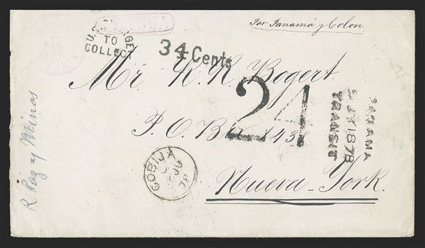 Por Panamá y Colon
U.S. CHARGE
TO
COLLECT
34 Cents
Mr R. R. Bogert
24
P.O. Box 43
PANAMA
1878
TRANSIT
COBIJA
78
Nueva-York.
R Paz y Minas